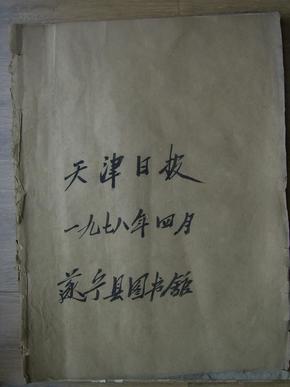 天津日报
一九七八年四月
遂宁县图书馆